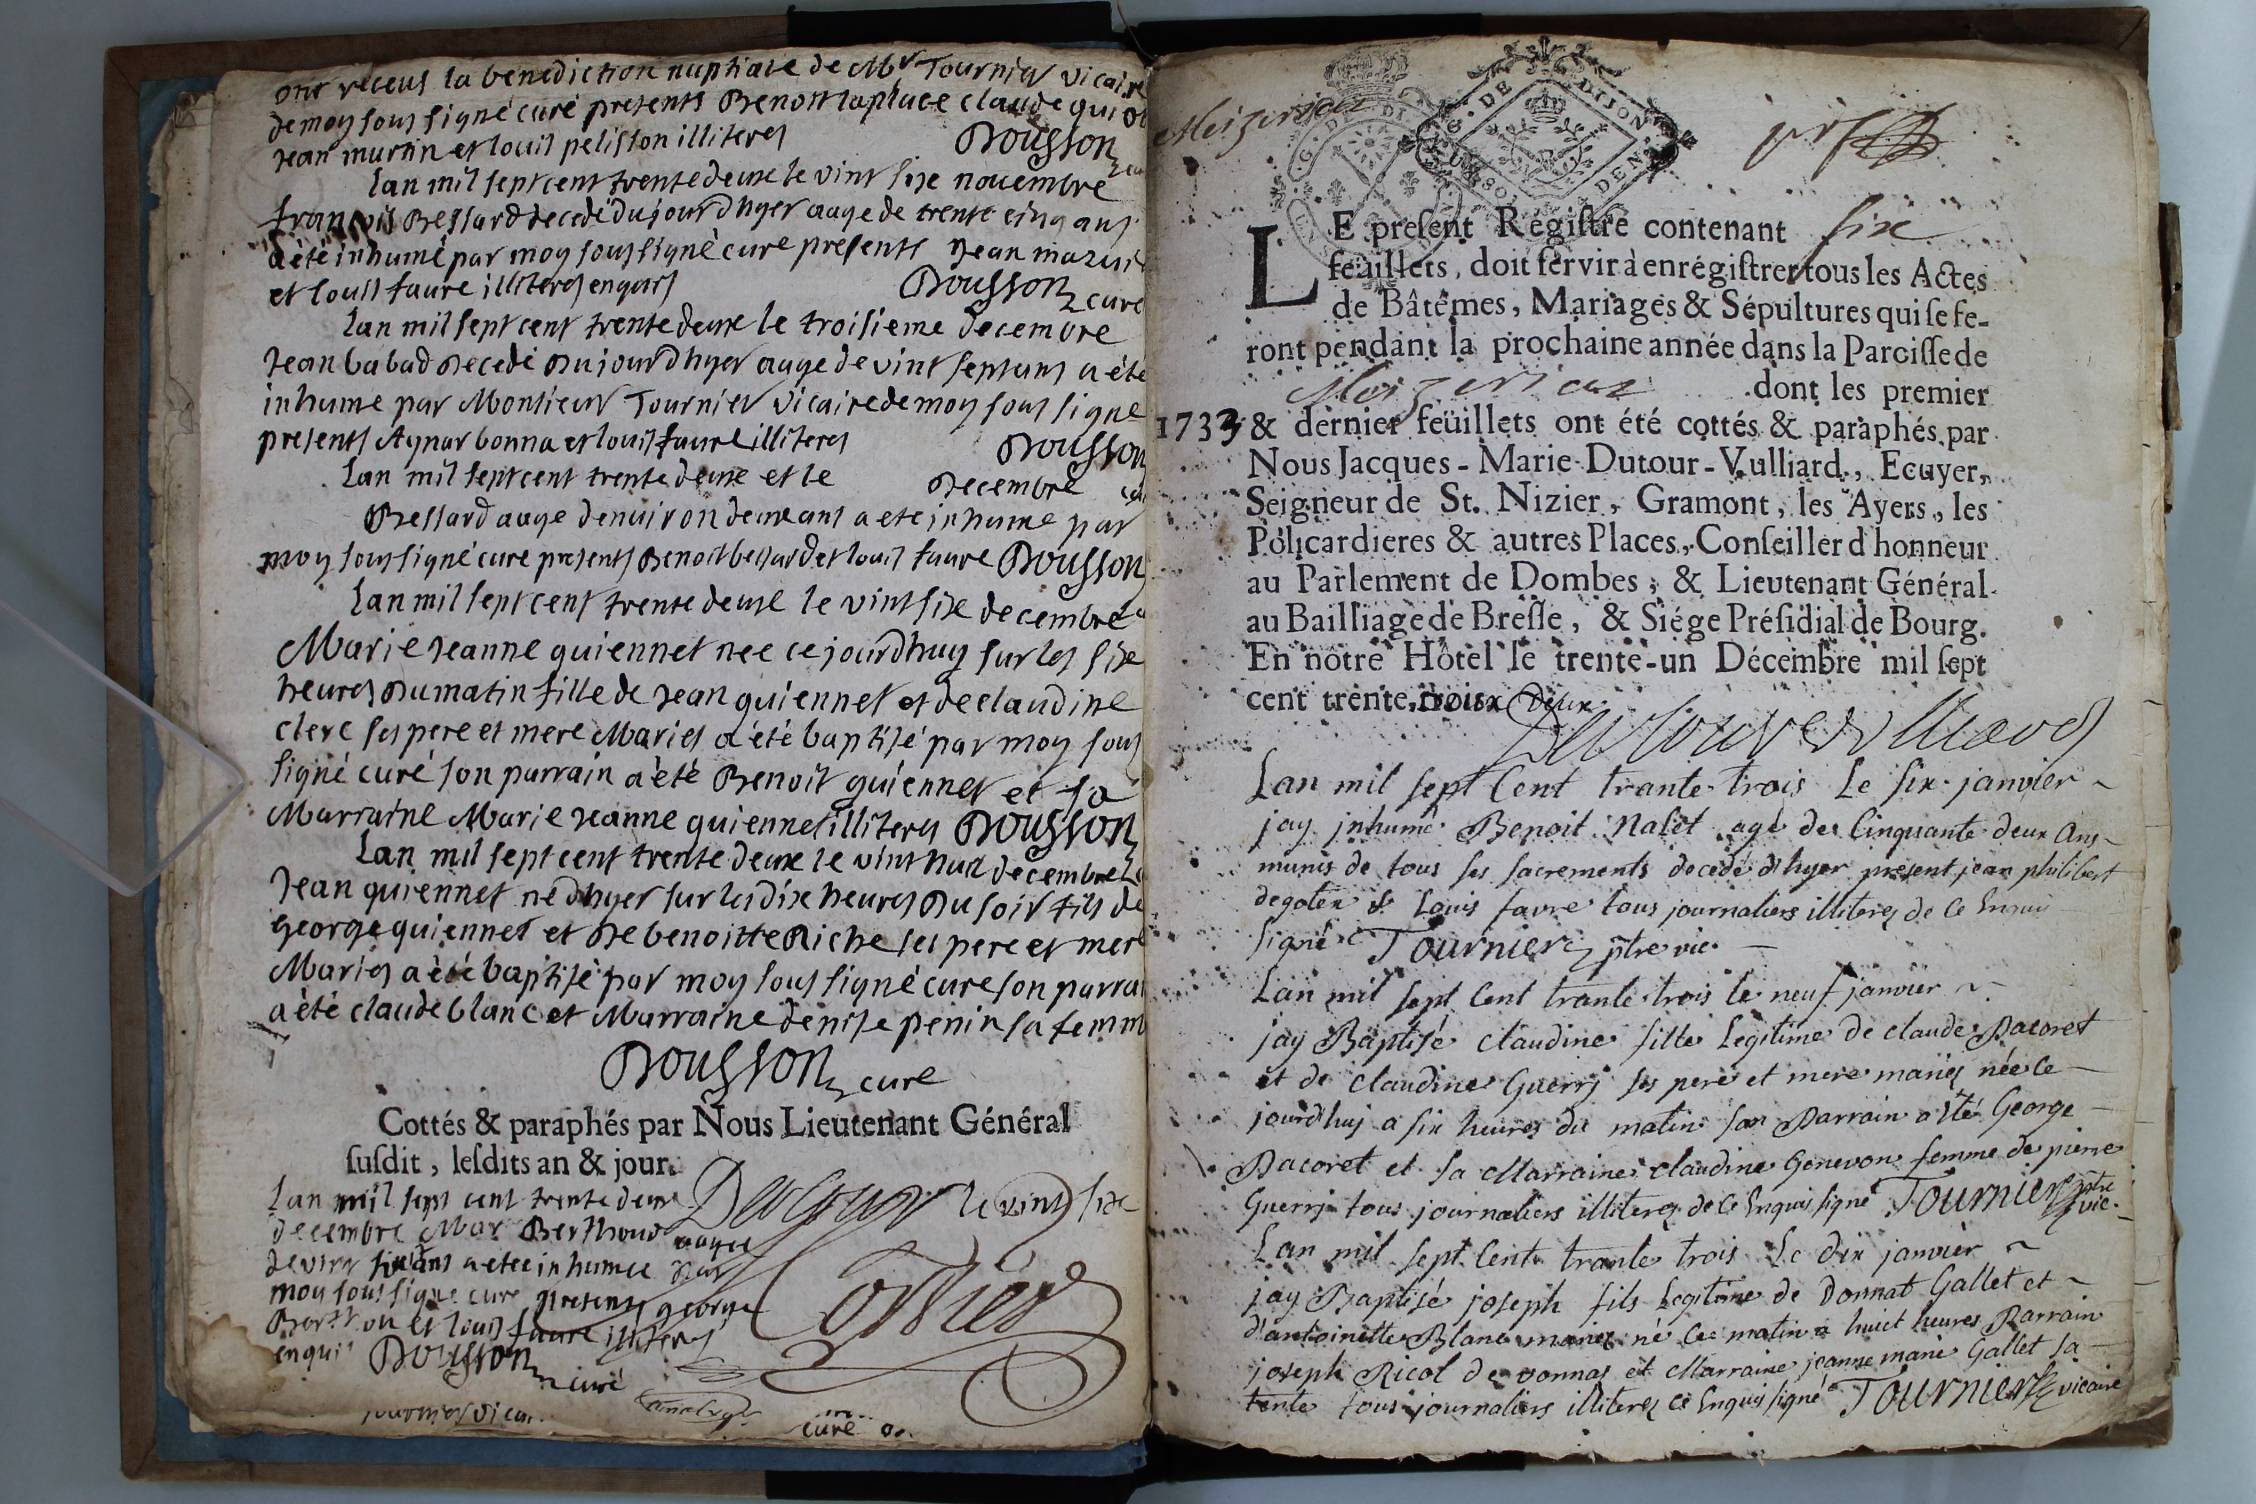 ont receus la benediction nuptiale de Mr Tournier vicaire
de moy sous signé curé presents Benoit laplace claude guiot
Jean murtin et louis pelisson illiteres Dousson
lan mil sept cent trente deuxe le vint sixe novembre
françois Bessard decedé du jour d hyer auge de trente cinq ans
a été inhumé par moy sous signé cure presents Jean mazuir
et louis faure illiteres enquis Dousson cure
lan mil sept cent trente deuxe le troisieme decembre
Jean babad decedé du jour d hyer auge de vint sept ans a été
inhume par Monsieur Tournier vicaire de moy sous signe
presents Aynar bonna et louis faure illiteres Dousson
lan mil sept cent trente deuxe et le decembre
Bessard auge denuiron deuxe ans a ete inhume par
moy sous signé cure presents Benoit bessard et louis faure Dousson
lan mil sept cent trente deuxe le vint sixe decembre
Marie Jeanne quiennet nee ce jourdhuy sur les sixe
heures du matin fille de Jean quiennet et de claudine
clerc ses pere et mere Maries a été baptisé par moy sous
signé curé son parrain a été Benoit quiennet et sa
Marraine Marie Jeanne quiennet illiteres Dousson
lan mil sept cent trente deuxe le vint huit decembre
Jean quiennet né d hyer sur les dixe heures du soir fils de
George quiennet et de benoitte Riche ses pere et mere
Maries a été baptisé par moy sous signé cure son parrai
a été claude blanc et Marraine denise penin sa femm
Dousson cure
Cottés & paraphés par Nous Lieutenant Général
susdit, lesdits an & jour.
lan mil sept cent trente deuxe le vint sixe
decembre Mar Berthoud augee
de vint sixe ans a etee inhumee par
moy sous signe cure presents george
Berthou et louis faure illiteres
enquis Dousson curé
Tournier vicai
cure
Meizeriat
G. DE DIJON
LE present Régistre contenant sixe
feüillets, doit servir à enrégistrer tous les Actes
de Bâtêmes, Mariages & Sépultures qui se fe-
ront pendant la prochaine année dans la Paroisse de
Meizeriat dont les premier
1733 & dernier feüillets ont été cottés & paraphés par
Nous Jacques-Marie Dutour-Vulliard, Ecuyer,
Seigneur de St. Nizier, Gramont, les Ayers, les
Policardieres & autres Places, Conseiller d'honneur
au Parlement de Dombes, & Lieutenant Général
au Bailliage de Bresse, & Siége Présidial de Bourg.
En nôtre Hôtel le trente-un Décembre mil sept
cent trente, trois deux
Lan mil sept Cent trante trois Le six janvier
jay jnhumé Benoit Nalet agé de Cinquante deux Ans
munis de tous ses sacrements decedé d'hyer present jean philibert
degoten & Louis favre tous journaliers illiteres de ce Enquis
signé Tournier ptre vic.
Lan mil sept Cent trante trois le neuf janvier
jay Baptisé claudine fille Legitime de claude Dacoret
et de claudine Guerry ses pere et mere mariés née ce
jourdhuj a six heures du matin son Parrain a été George
Dacoret et sa Marraine claudine Genevon femme de pierre
Guerry tous journaliers illiteres de ce Enquis signé Tournier ptre vic.
Lan mil sept Cent trante trois Le dix janvier
jay Baptisé joseph fils Legitime de Donnat Gallet et
d'antoinette Blanc mariez né ce matin a huict heures Parrain
joseph Ricol de vonnas et Marraine jeanne marie Gallet sa
tente tous journaliers illiteres ce Enquis signé Tournier vicaire